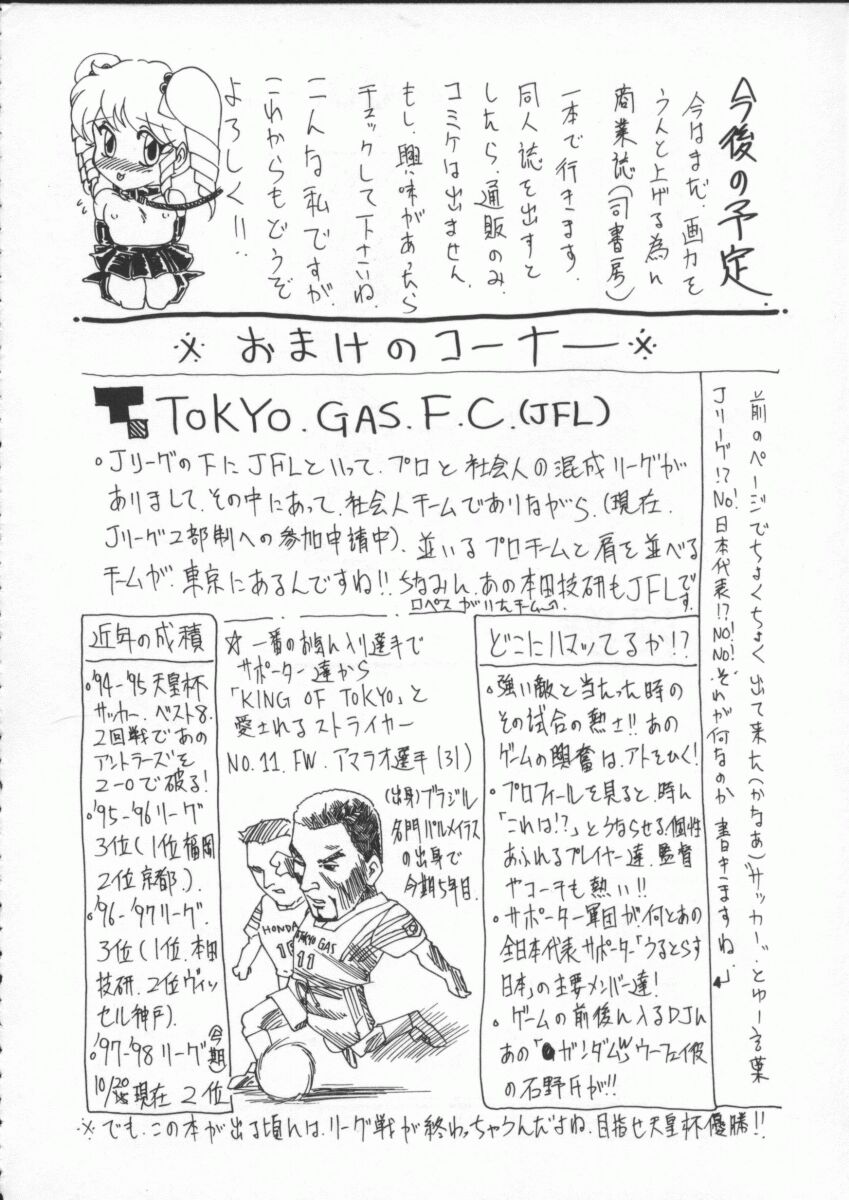 今後の予定
今はまだ、画力を
うんと上げる為に
商業誌(司書房)
一本で行きます。
同人誌を出すと
したら、通販のみ。
コミケは出ません。
もし、興味があったら
チェックして下さいね。
こんな私ですが、
これからもどうぞ
よろしく!!
※おまけのコーナー※
前のページでちょくちょく出て来た(かなあ)"サッカー"とゆー言葉
Jリーグ!?NO!日本代表!?NO!NO!それが何なのか書きますね。
TOKYO.GAS.F.C.(JFL)
。Jリーグの下にJFLといって、プロと社会人の混成リーグが
ありまして、その中にあって、社会人チームでありながら、(現在、
Jリーグ2部制への参加申請中)、並いるプロチームと肩を並べる
チームが、東京にあるんですね!!ちなみに、あの本田技研もJFLです。
ロペスがいたチーム
近年の成積
。'94-'95天皇杯
サッカー、ベスト8。
2回戦であの
アントラーズを
2-0で破る!
。'95-'96リーグ
3位(1位福岡
2位京都)
。'96-'97リーグ
3位(1位、本田
技研、2位ヴィッ
セル神戸)
。'97-'98リーグ(今期)
10/20現在2位
☆一番のお気に入り選手で
サポーター達から
「KING OF TOKYO」と
愛されるストライカー
NO.11.FW.アマラオ選手(31)
(出身)ブラジル
名門パルメイラス
の出身で
今期5年目。
HONDA
10
TOKYO GAS
11
どこにハマッてるか!?
。強い敵と当たった時の
その試合の熱さ!!あの
ゲームの興奮は、アトをひく!
。プロフィールを見ると、時に
「これは!?」とうならせる、個性
あふれるプレイヤー達、監督
やコーチも熱い!!
。サポーター軍団が、何とあの
全日本代表サポーター「うるとらす
日本」の主要メンバー達!
。ゲームの前後に入るDJに
あの「ガンダムW」ウーフェイ役
の石野氏が!!
※でも、この本が出る頃には、リーグ戦が終わっちゃうんだよね、目指せ天皇杯優勝!!